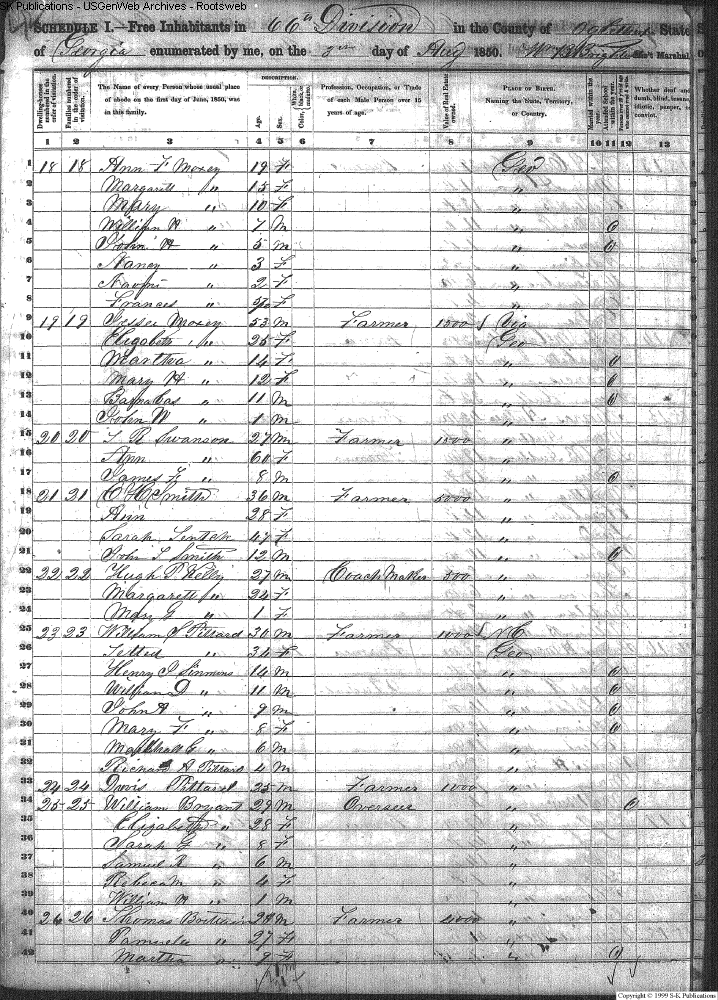 SK Publications - USGenWeb Archives - Rootsweb
SCHEDULE I.—Free Inhabitants in 66th Division in the County of Oglethorpe State
of Georgia enumerated by me, on the day of Aug 1850. Ass't Marshal.
Dwelling-houses numbered in the order of visitation.
Families numbered in the order of visitation.
The Name of every Person whose usual place of abode on the first day of June, 1850, was in this family.
DESCRIPTION.
Age.
Sex.
Color, White, black, or mulatto.
Profession, Occupation, or Trade of each Male Person over 15 years of age.
Value of Real Estate owned.
PLACE OF BIRTH. Naming the State, Territory, or Country.
Married within the year.
Attended School within the year.
Whether deaf and dumb, blind, insane, idiotic, pauper, or convict.
1 2 3 4 5 6 7 8 9 10 11 12 13
1 18 18 Ann F Moxey 19 F Geo
2 Margarett " 15 F "
3 Mary " 10 F "
4 William H " 7 M "
5 John H " 5 M "
6 Nancy " 3 F "
7 Naomi " 2 F "
8 Frances " F "
9 19 19 Jesse Moxey 53 M Farmer 1500 Via
10 Elizabeth " 25 F Geo
11 Martha " 14 F "
12 Mary H " 12 F "
13 Barnabas " 11 M "
14 John W " 1 M "
15 20 20 Swanson 27 M Farmer 1500 "
16 Ann " 60 F "
17 James F " 8 M "
18 21 21 Smith 36 M Farmer 5000 "
19 Ann 28 F "
20 Sarah 47 F "
21 John L Smith 12 M "
22 22 22 Hugh P Kelly 27 M Coach Maker 500 "
23 Margarett " 24 F "
24 Mary G " 1 F "
25 23 23 William S Pittard 30 M Farmer 1000 N C
26 " 34 F Geo
27 Henry J Simmins 14 M "
28 William D " 11 M "
29 John A " 9 M "
30 Mary F " 8 F "
31 Marshall G " 6 M "
32 Richard A Pittard 4 M "
33 24 24 Davis Pittard 25 M Farmer 1000 "
34 25 25 William Bryant 29 M Overseer "
35 Elizabeth " 28 F "
36 Sarah G " 8 F "
37 Samuel R " 6 M "
38 Rebecca " 4 F "
39 William H " 1 M "
40 26 26 Thomas 28 M Farmer 4000 "
41 Pamelia " 27 F "
42 Martha " F "
Copyright © 1999 S-K Publications